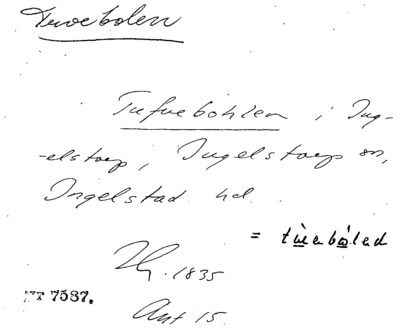 Tuvebolen
Tufvebohlen i Ing-
-elstorp, Ingelstorps sn,
Ingelstad hd.
= tùvəbōləd
Zg. 1835
Akt 15.
NT 7587.